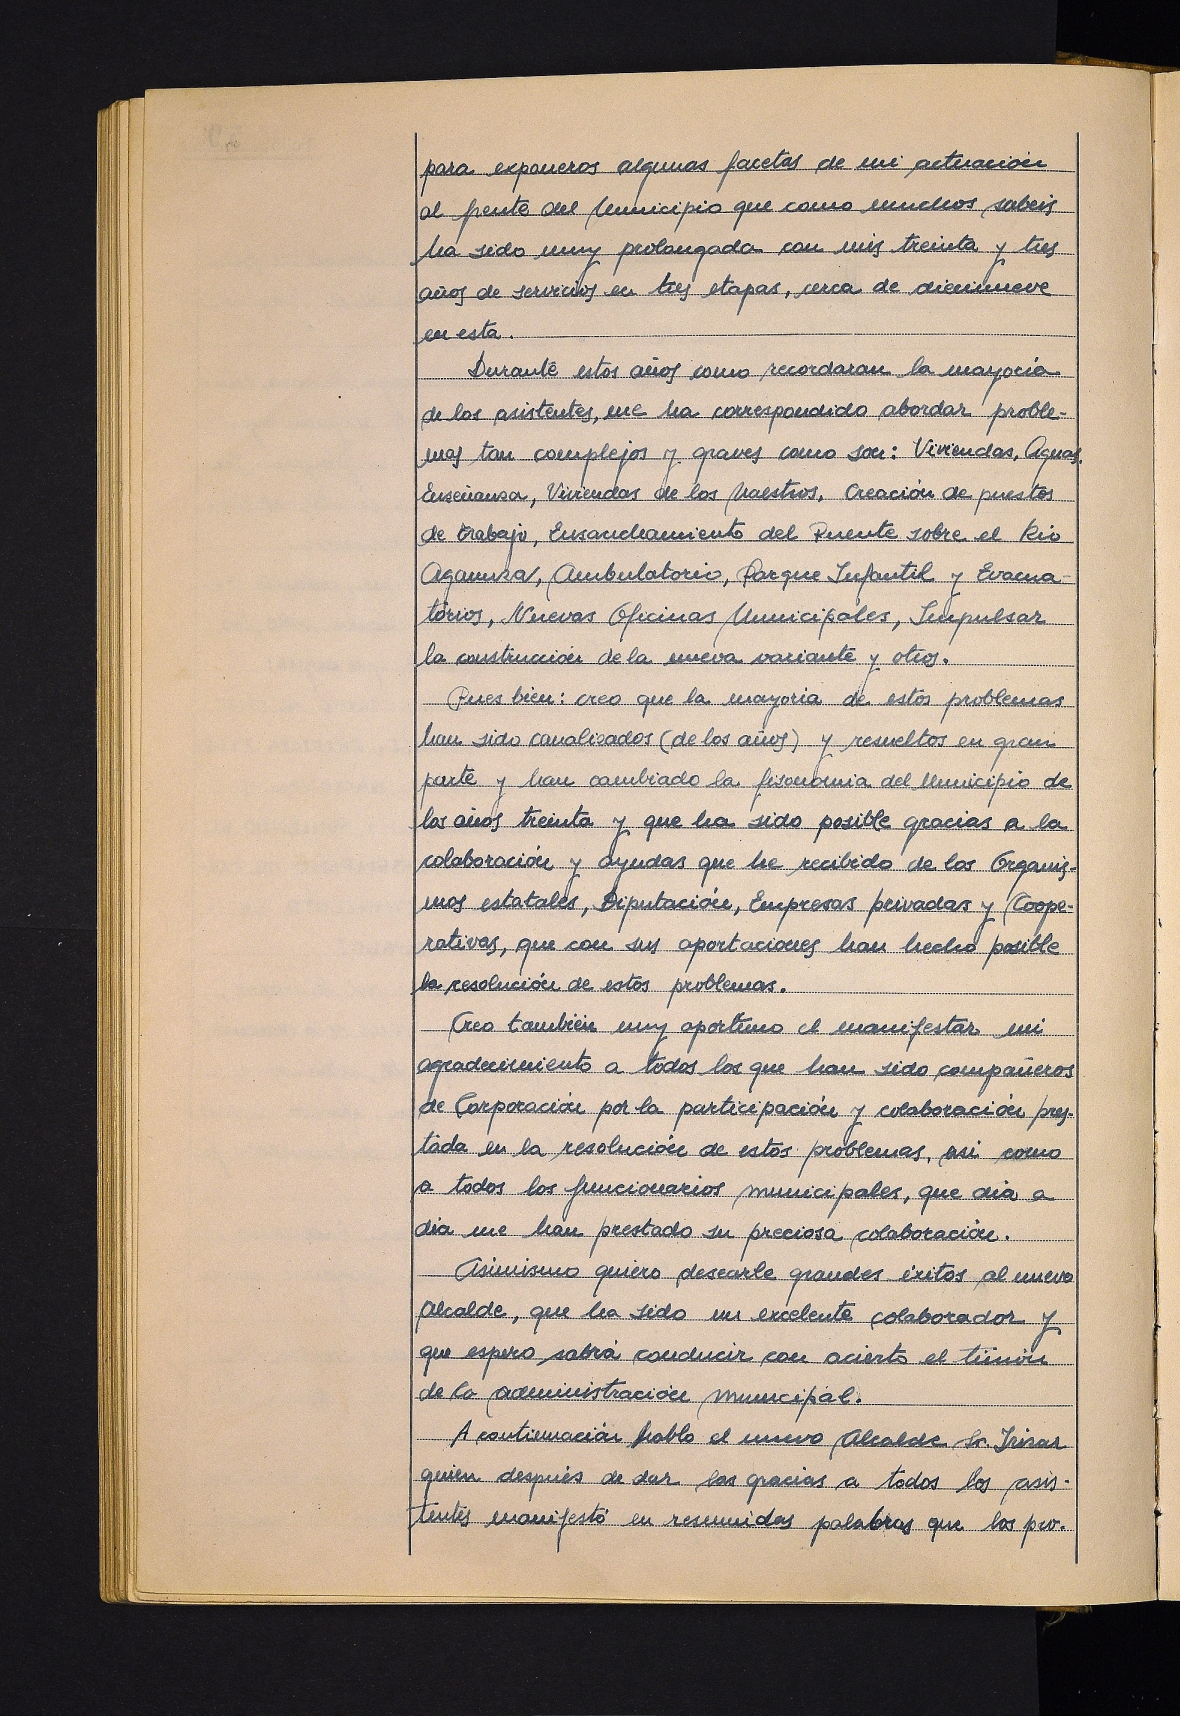 para exponeros algunas facetas de mi actuación
al frente del Municipio que como muchos sabeis
ha sido muy prolongada con mis treinta y tres
años de servicios en tres etapas, cerca de diecinueve
en esta.
Durante estos años como recordaran la mayoría
de los asistentes, me ha correspondido abordar proble-
mas tan complejos y graves como son: Viviendas, Aguas,
Enseñanza, Viviendas de los Maestros, Creación de puestos
de trabajo, Ensanchamiento del Puente sobre el Rio
Agaunza, Ambulatorio, Parque Infantil y Evacua-
torios, Nuevas Oficinas Municipales, Impulsar
la construcción de la nueva variante y otros.
Pues bien: creo que la mayoria de estos problemas
han sido canalizados (de los años) y resueltos en gran
parte y han cambiado la fisonomia del Municipio de
los años treinta y que ha sido posible gracias a la
colaboración y ayudas que he recibido de los Organis-
mos estatales, Diputación, Empresas privadas y Coope-
rativas, que con sus aportaciones han hecho posible
la resolución de estos problemas.
Creo también muy oportuno el manifestar mi
agradecimiento a todos los que han sido compañeros
de Corporación por la participación y colaboración pres-
tada en la resolución de estos problemas, asi como
a todos los funcionarios municipales, que dia a
dia me han prestado su preciosa colaboración.
Asimismo quiero desearle grandes éxitos al nuevo
Alcalde, que ha sido un excelente colaborador y
que espero sabrá conducir con acierto el timón
de la administración municipal.
A continuación hablo el nuevo Alcalde Sr. Irizar
quien después de dar las gracias a todos los asis-
tentes manifestó en resumidas palabras que los pro-